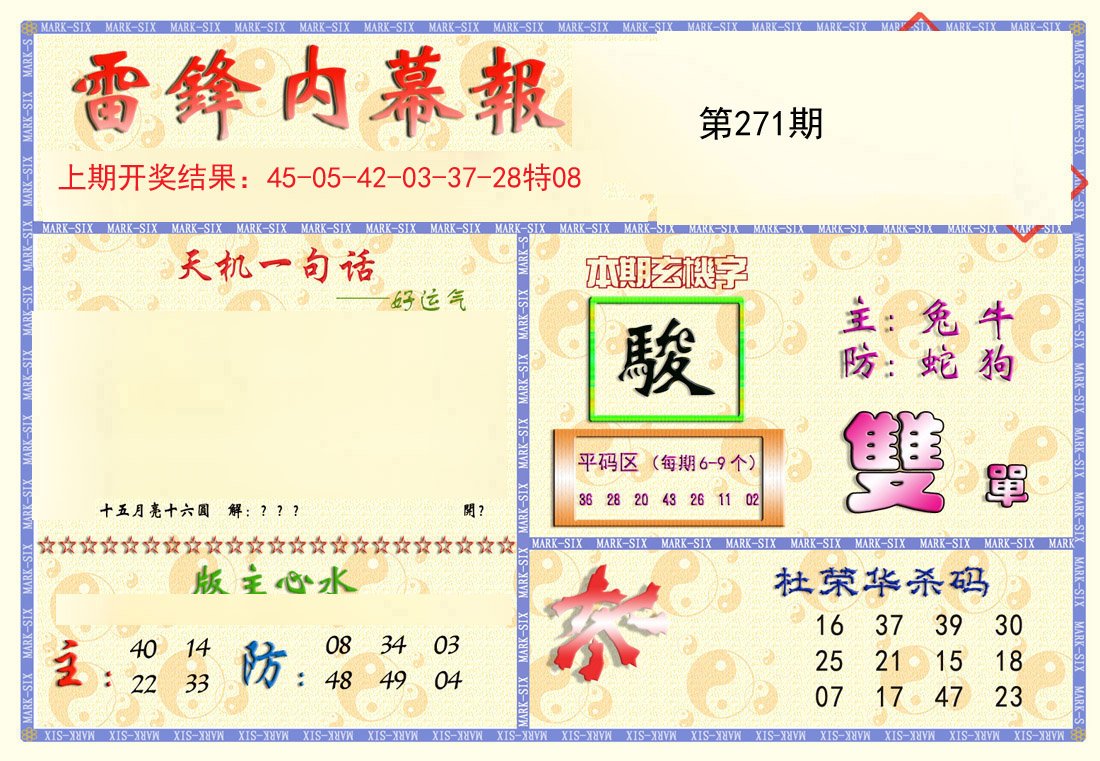 雷鋒内幕報
第271期
上期开奖结果：45-05-42-03-37-28特08
天机一句话
——好运气
十五月亮十六圆 解：？？？ 開？
☆☆☆☆☆☆☆☆☆☆☆☆☆☆☆☆☆☆☆☆☆☆☆
版主心水
主： 40 14 防： 08 34 03
22 33 48 49 04
本期玄機字
駿
主：兔 牛
防：蛇 狗
雙 單
平码区（每期6-9个）
36 28 20 43 26 11 02
杀
杜荣华杀码
16 37 39 30
25 21 15 18
07 17 47 23
MARK-SIX